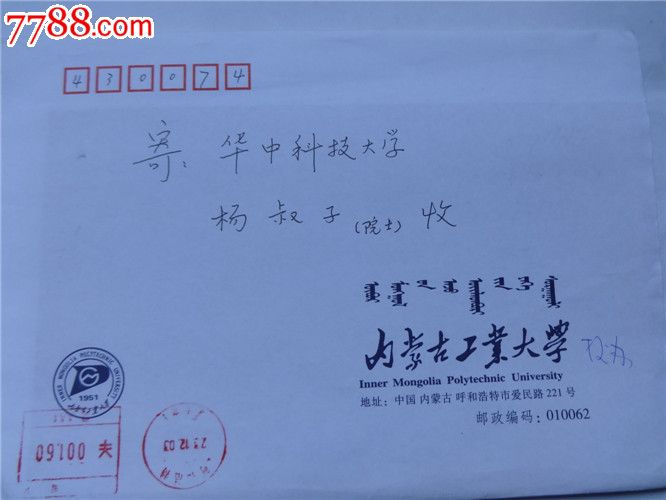 7788.com
430074
寄：华中科技大学
杨叔子（院士）收
内蒙古工业大学 校办
Inner Mongolia Polytechnic University
地址：中国 内蒙古 呼和浩特市爱民路 221 号
邮政编码：010062
INNER MONGOLIA POLYTECHNIC UNIVERSITY
1951
00160
23.12.03